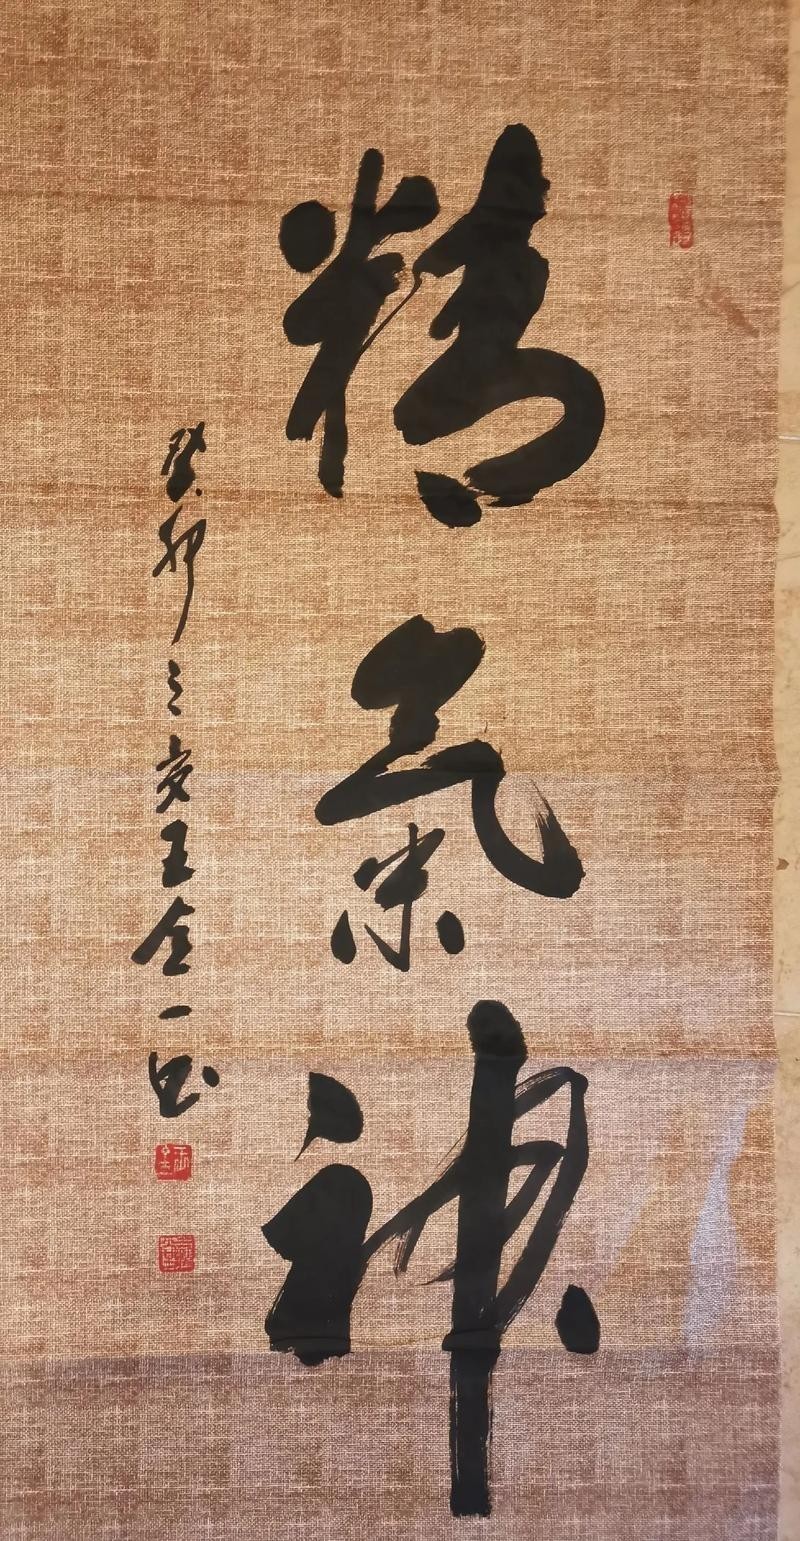 精氣神
癸卯之夏王一书